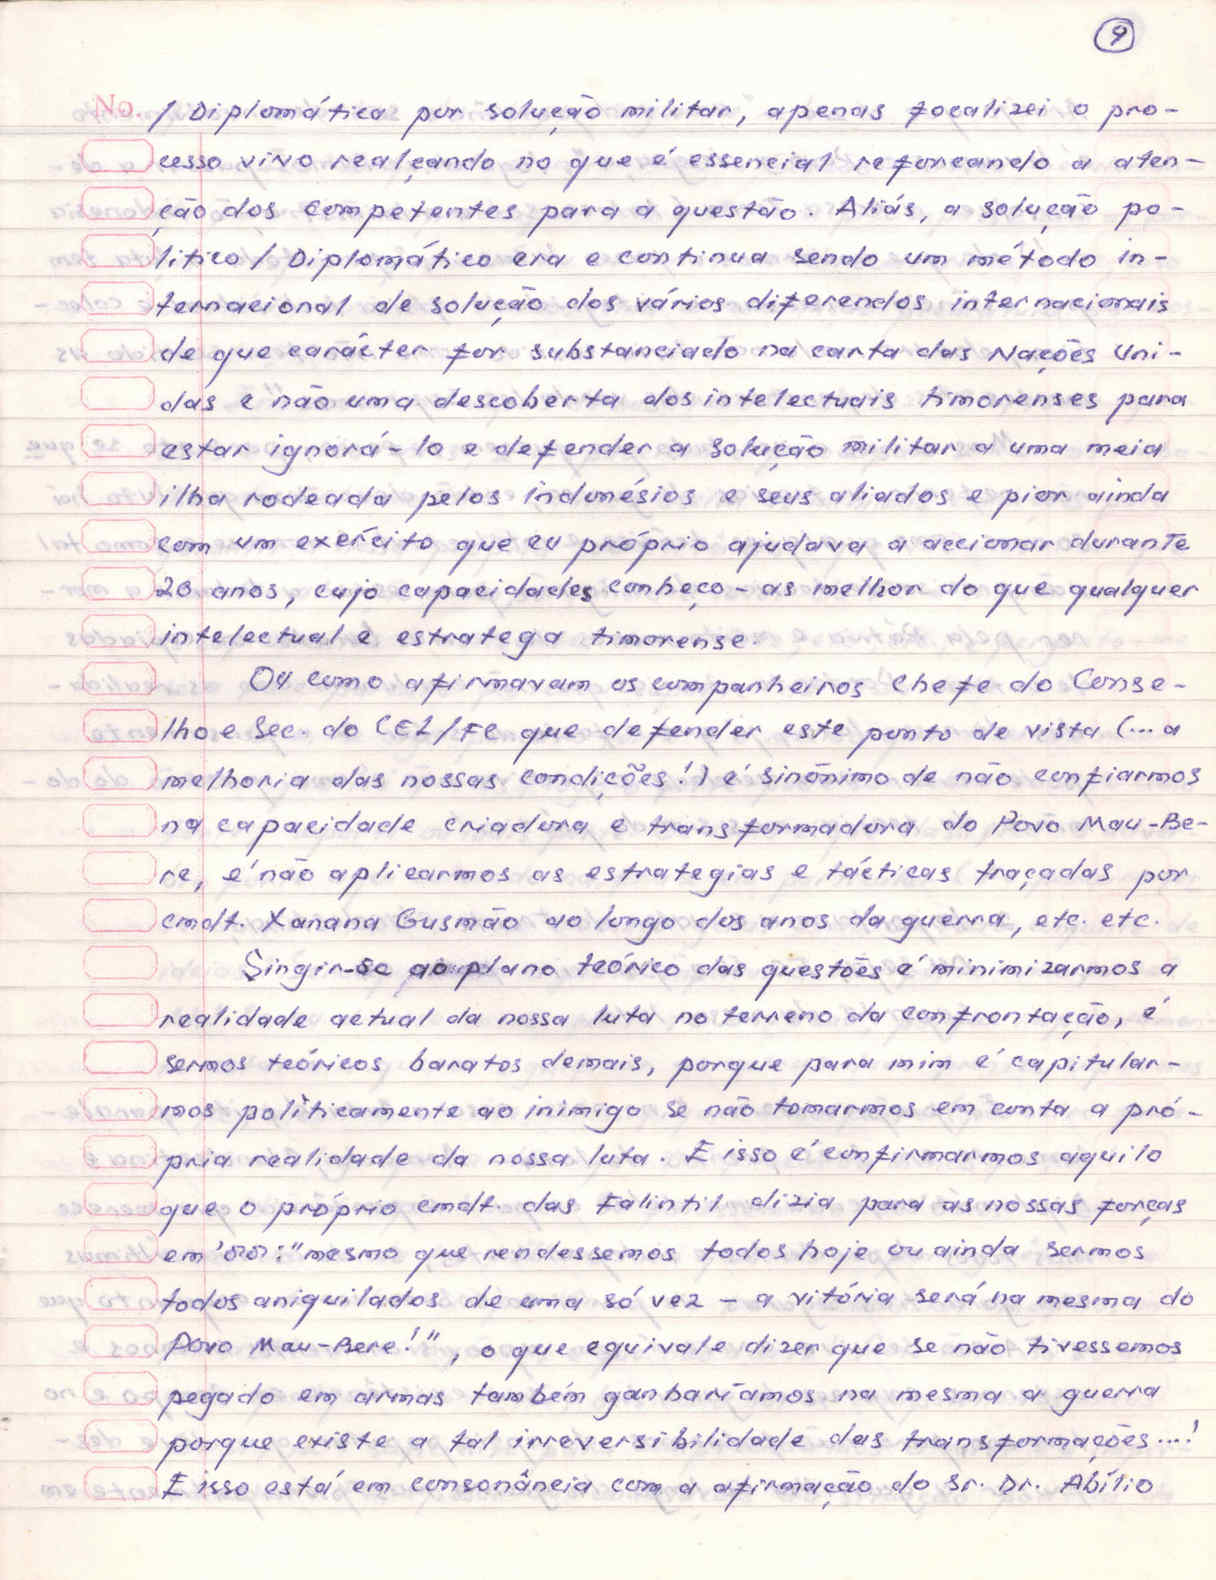 9
No.
/ Diplomática por solução militar, apenas focalizei o pro-
cesso vivo realçando no que é essencial reforcando a aten-
ção dos competentes para a questão. Aliás, a solução po-
lítico / Diplomático era e continua sendo um método in-
ternacional de solução dos vários diferendos internacionais
de que carácter for substanciado na carta das Nações Uni-
das e não uma descoberta dos intelectuais timorenses para
estar ignorá-lo e defender a solução militar a uma meia
ilha rodeada pelos indonésios e seus aliados e pior ainda
com um exército que eu próprio ajudava a accionar durante
20 anos, cujo capacidades conheço-as melhor do que qualquer
intelectual e estratega timorense.
Ou como afirmavam os companheiros Chefe do Conse-
lho e Sec. do CEL/FC que defender este ponto de vista (... a
melhoria das nossas condições!) é sinónimo de não confiarmos
na capacidade criadora e transformadora do Povo Mau-Be-
re, é não aplicarmos as estrategias e tácticas traçadas por
cmdt. Xanana Gusmão ao longo dos anos da guerra, etc. etc.
Singir-se ao plano teórico das questões é minimizarmos a
realidade actual da nossa luta no terreno da confrontação, é
sermos teóricos baratos demais, porque para mim é capitular-
mos politicamente ao inimigo se não tomarmos em conta a pró-
pria realidade da nossa luta. E isso é confirmarmos aquilo
que o próprio cmdt. das Falintil dizia para as nossas forças
em '88: "mesmo que rendessemos todos hoje ou ainda sermos
todos aniquilados de uma só vez - a vitória será na mesma do
Povo Mau-Bere!", o que equivale dizer que se não tivessemos
pegado em armas também ganharíamos na mesma a guerra
porque existe a tal irreversibilidade das transformações...!
E isso está em consonância com a afirmação do Sr. Dr. Abílio